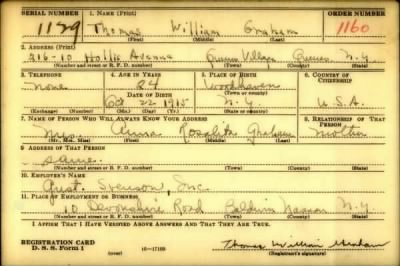 SERIAL NUMBER
1. NAME (Print)
ORDER NUMBER
1129
Thomas William Graham
1160
(First) (Middle) (Last)
2. ADDRESS (Print)
216-10 Hollis Avenue Queens Village Queens N.Y.
(Number and street or R. F. D. number) (Town) (County) (State)
3. TELEPHONE
4. AGE IN YEARS
5. PLACE OF BIRTH
6. COUNTRY OF CITIZENSHIP
None
24
Woodhaven
DATE OF BIRTH
(Town or county)
Oct 22 1915
N.Y.
U.S.A.
(Exchange) (Number)
(Mo.) (Day) (Yr.)
(State or country)
7. NAME OF PERSON WHO WILL ALWAYS KNOW YOUR ADDRESS
8. RELATIONSHIP OF THAT PERSON
Mrs. Anna Rosalita Graham
Mother
(Mr., Mrs., Miss) (First) (Middle) (Last)
9. ADDRESS OF THAT PERSON
Same.
(Number and street or R. F. D. number) (Town) (County) (State)
10. EMPLOYER'S NAME
Gust. Svenson, Inc.
11. PLACE OF EMPLOYMENT OR BUSINESS
10 Devonshire Road Baldwin Nassau N.Y.
(Number and street or R. F. D. number) (Town) (County) (State)
I AFFIRM THAT I HAVE VERIFIED ABOVE ANSWERS AND THAT THEY ARE TRUE.
REGISTRATION CARD
D. S. S. Form 1
16—17105
(over)
Thomas William Graham
(Registrant's signature)